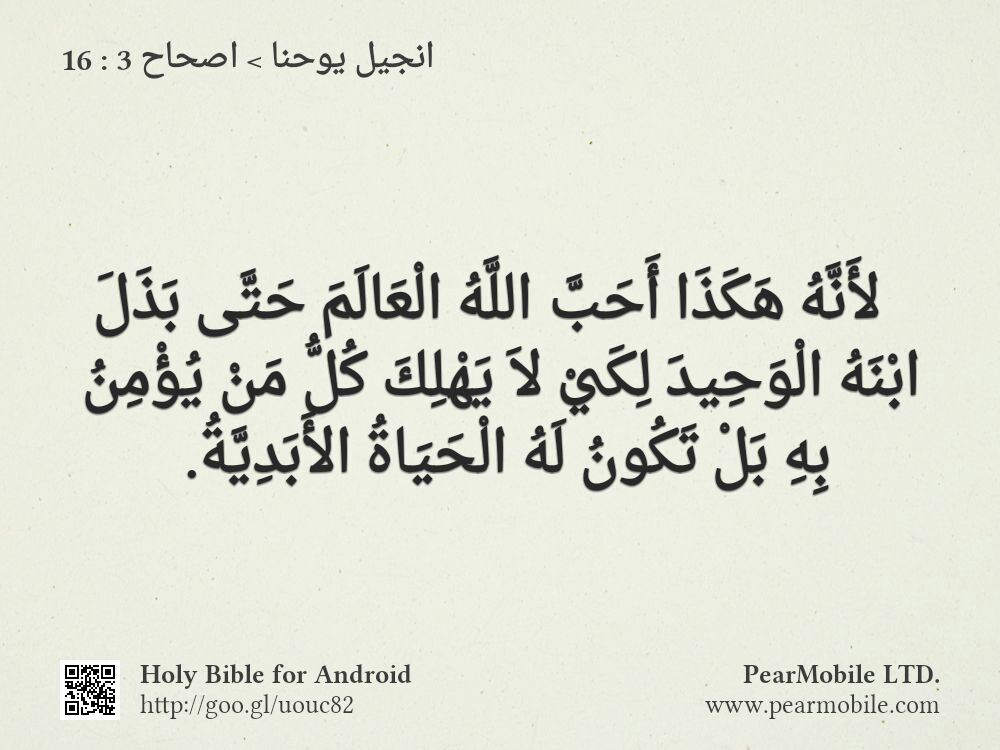 انجيل يوحنا > اصحاح 3 : 16
لأَنَّهُ هَكَذَا أَحَبَّ اللَّهُ الْعَالَمَ حَتَّى بَذَلَ
ابْنَهُ الْوَحِيدَ لِكَيْ لاَ يَهْلِكَ كُلُّ مَنْ يُؤْمِنُ
بِهِ بَلْ تَكُونُ لَهُ الْحَيَاةُ الأَبَدِيَّةُ.
Holy Bible for Android
http://goo.gl/uouc82
PearMobile LTD.
www.pearmobile.com